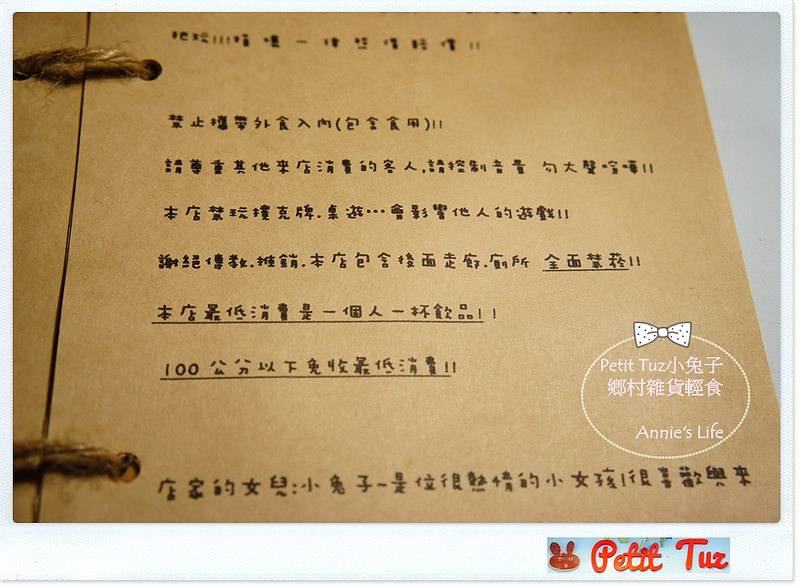 把玩!!!損壞一律照價賠償!!
禁止攜帶外食入內(包含食用)!!
請尊重其他來店消費的客人,請控制音量 勿大聲喧嘩!!
本店禁玩撲克牌.桌遊…會影響他人的遊戲!!
謝絕傳教.推銷.本店包含後面走廊.廁所 全面禁菸!!
本店最低消費是一個人一杯飲品!!
100公分以下免收最低消費!!
店家的女兒:小兔子~是位很熱情的小女孩!很喜歡與來
Petit Tuz小兔子
鄉村雜貨輕食
Annie's Life
Petit Tuz